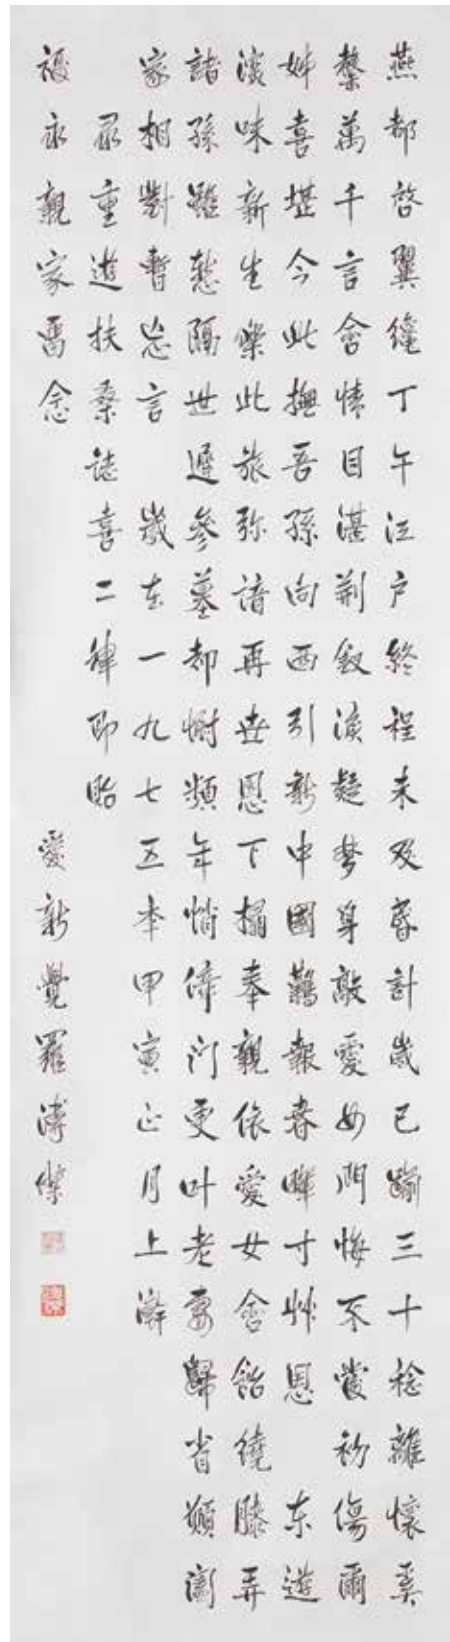 燕都啓翼纔丁午江户終程未及昏計歲已踰三十稔離懷奚
罄萬千言含情目湛荊釵淚疑夢身敲愛女門悔不當初傷爾
姊喜堪今此撫吾孫向西引新中國鵲報春暉寸艸恩 東遊
淡味新生樂此旅弥諳再世恩下榻奉親依愛女含飴繞膝弄
諸孫雖愁隔世遲參墓却慚頻年悄倚門更叶老妻歸省願闔
家相對暫忘言 歲在一九七五年甲寅正月上澣
重遊扶桑誌喜二律即貽
福永親家留念 愛新覺羅溥傑